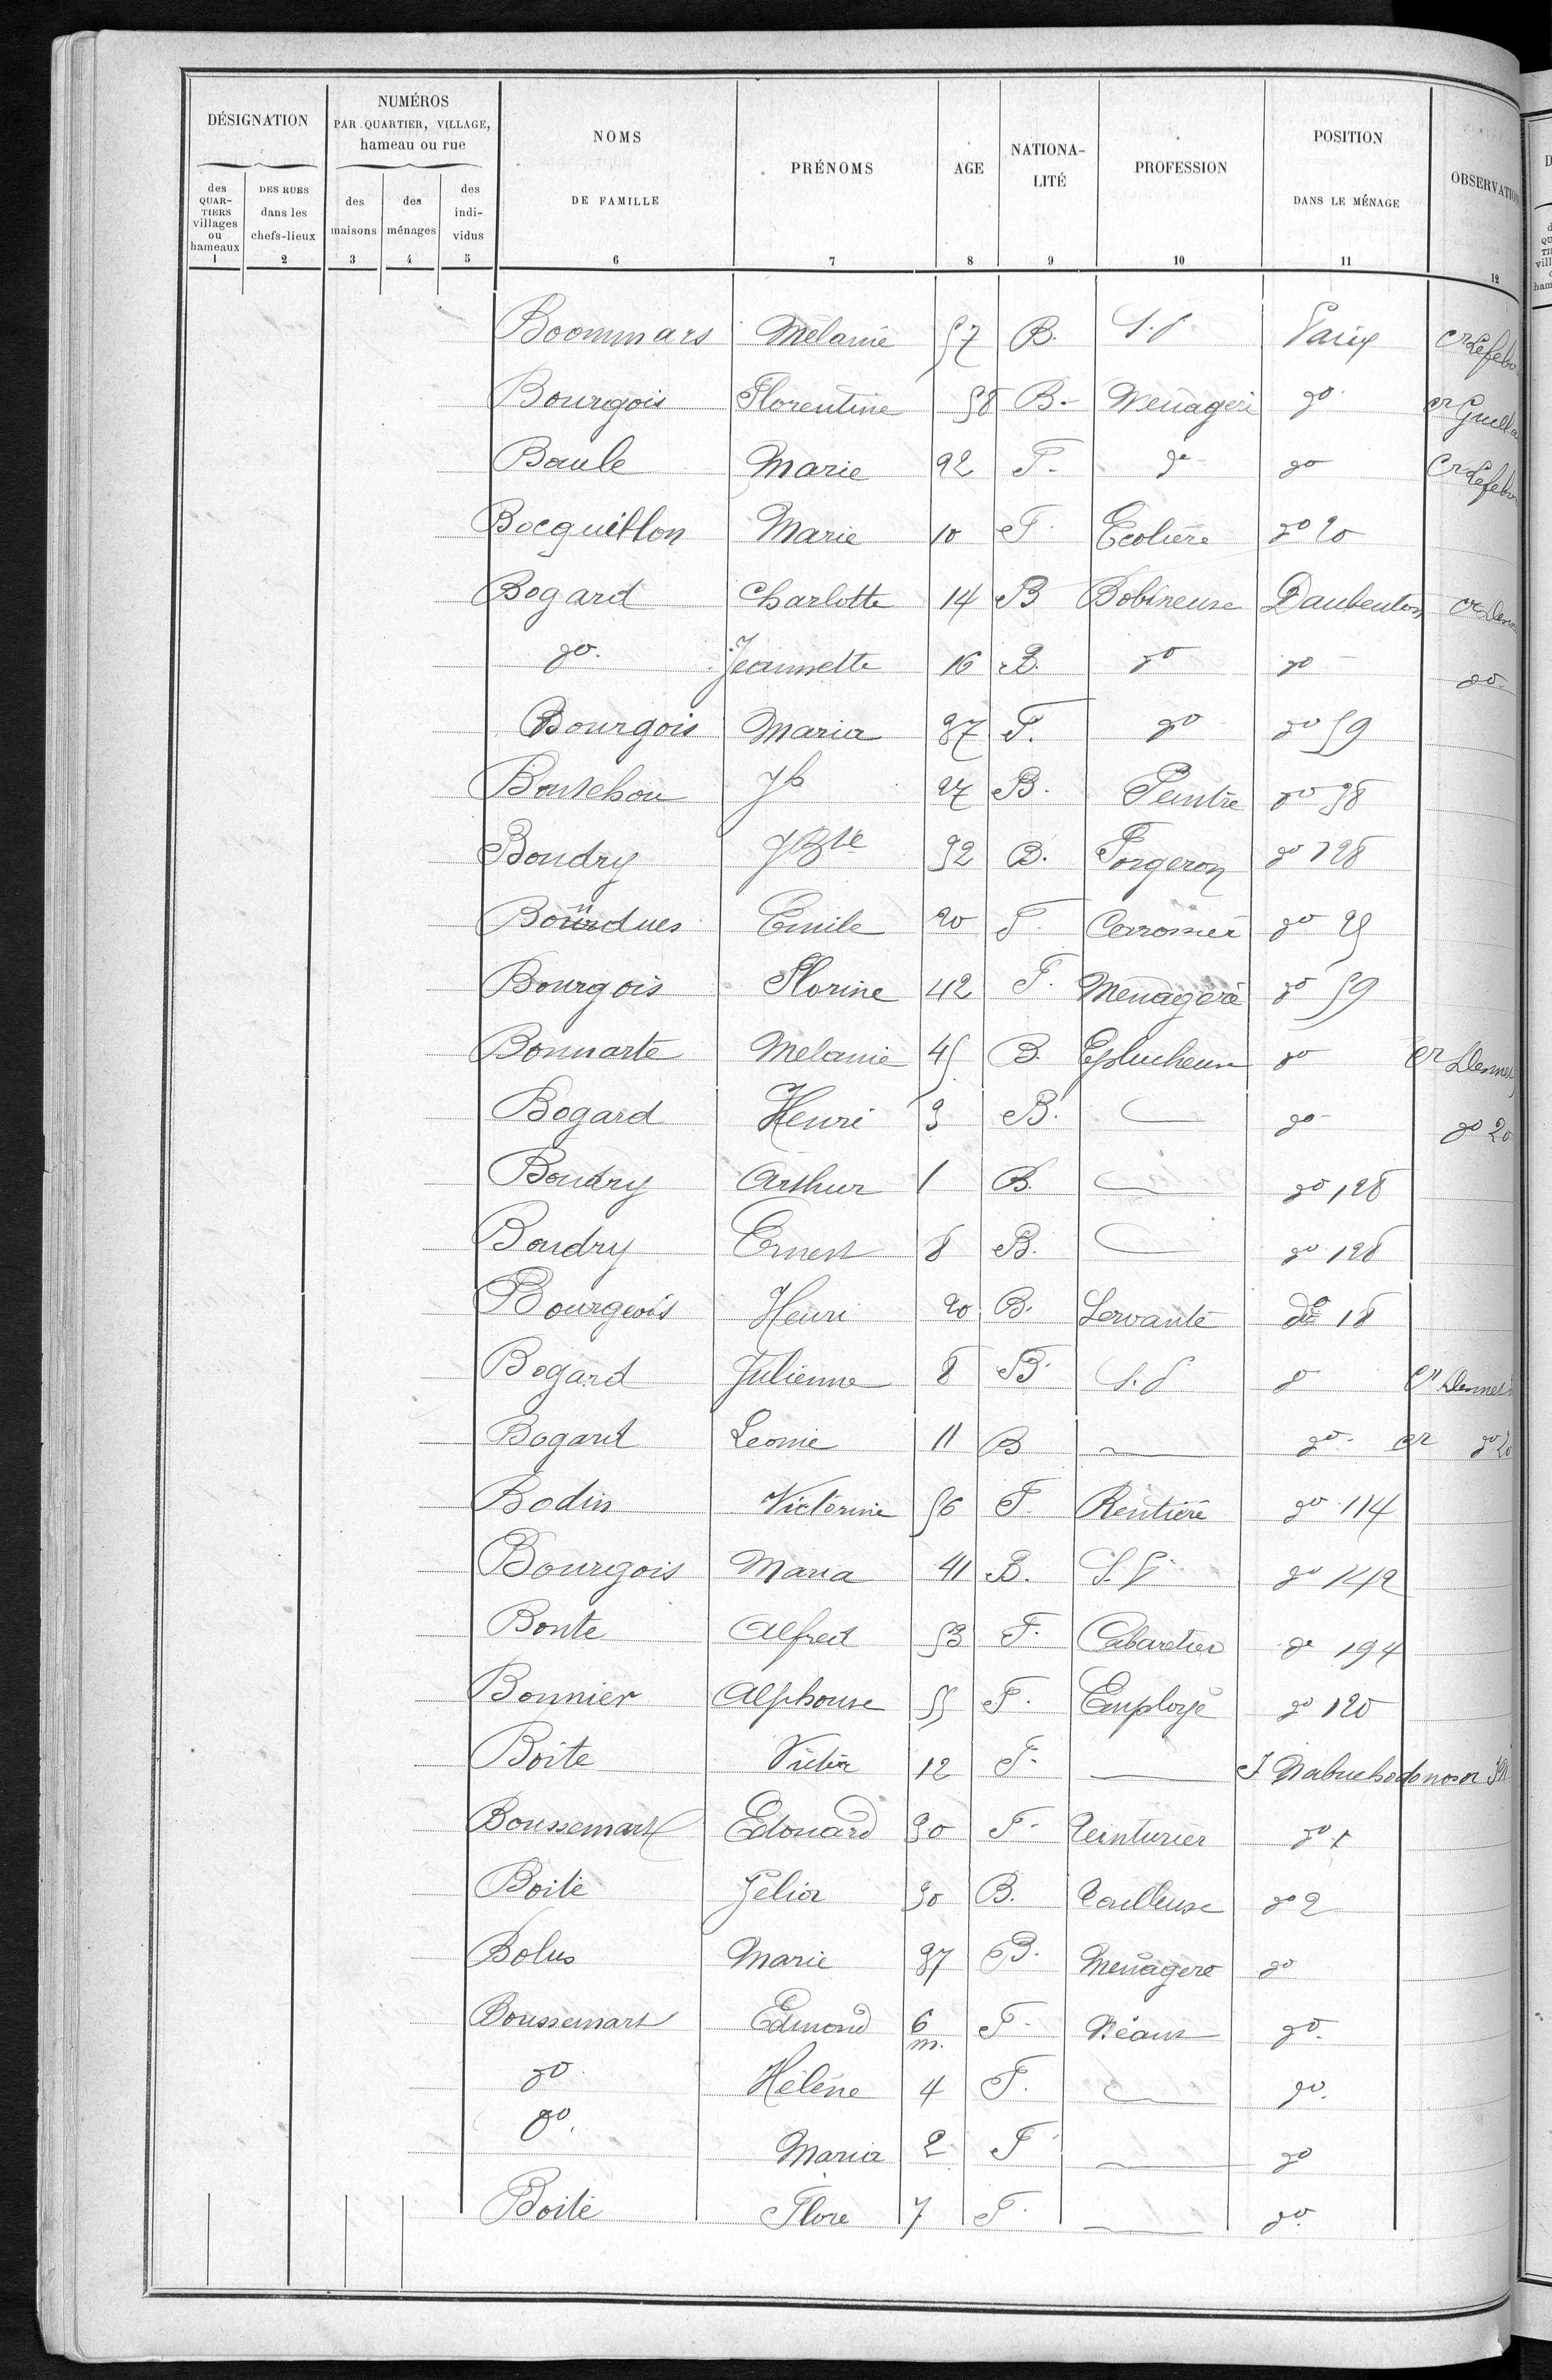 DÉSIGNATION
des QUARTIERS villages ou hameaux
DES RUES dans les chefs-lieux
NUMÉROS
PAR QUARTIER, VILLAGE,
hameau ou rue
des maisons
des ménages
des individus
NOMS
DE FAMILLE
PRÉNOMS
AGE
NATIONALITÉ
PROFESSION
POSITION
DANS LE MÉNAGE
OBSERVATIO
1 2 3 4 5 6 7 8 9 10 11 12
Boommars Mélanie 57 B. S.P
Bourgois Florentine 58 B. Ménagère do
Baule Marie 92 F. do do
Bocquillon Marie 10 F. Ecolière do 20
Bogard Charlotte 14 B Bobineuse Daubenton
do. Jeannette 16 B. do do do
Bourgois Maria 37 F. do do 59
Jh 27 B. Peintre do 58
Boudry JBte 32 B. Forgeron do 128
Emile 20 F. do 25
Bourgois Florine 42 F. Ménagère do 59
Bonnarte Mélanie 45 B. do
Bogard Henri 3 B. — do do 20
Boudry Arthur 1 B. — do 128
Boudry Ernest 8 B. — do 128
Bourgeois Henri 20 B. Servante do 18
Bogard Julienne 8 B. S.P do
Bogard Leonie 11 B — do cr do 20
Bodin Victorine 56 F. Rentière do 114
Bourgois Maria 41 B. S.P do 142
Bonte Alfred 53 F. Cabaretier do 194
Bonnier Alphonse 55 F. Employé do 120
Boite Victor 12 F. — I Nabuchodonosor
Boussemart Edouard 30 F. Teinturier do
Boite 30 B. do 2
Bolus Marie 37 B. Ménagère do
Boussemart Edmond 6 m. F. Néant do.
do Hélène 4 F. — do.
do. Maria 2 F — do
Boite Flore 7 F. — do.